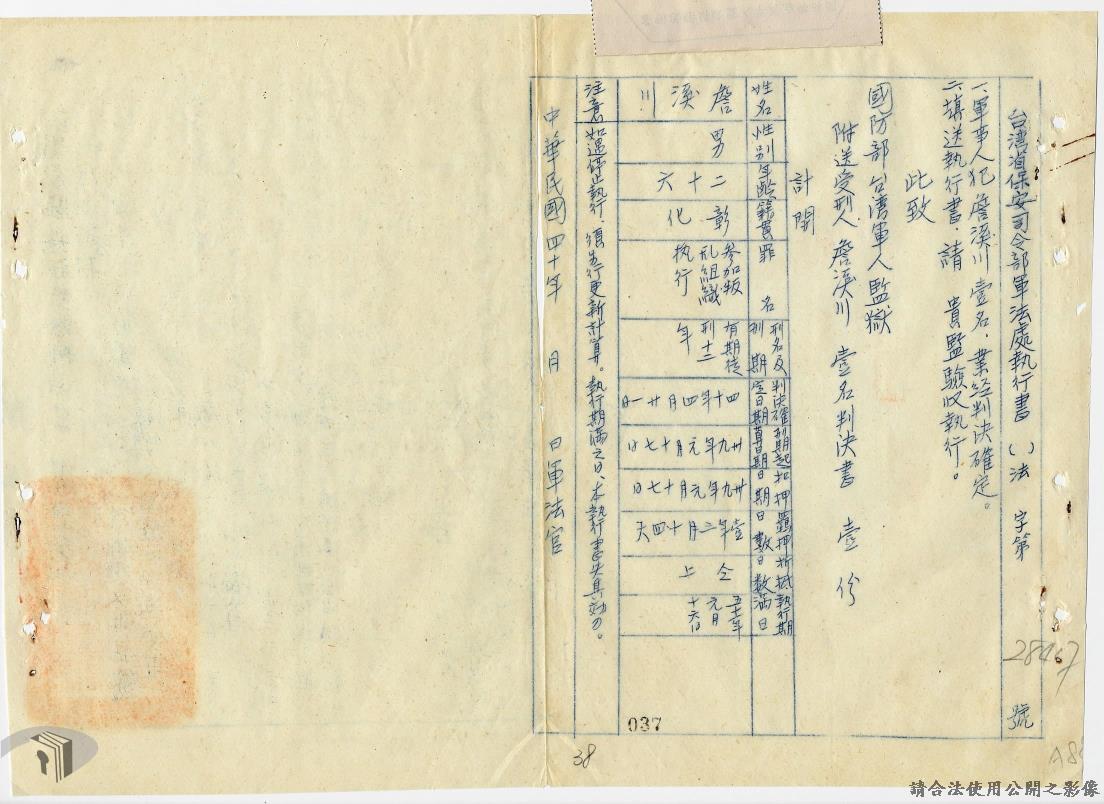 台湾省保安司令部軍法處執行書 ( ) 法 字第 28467 號
一、軍事人犯詹溪川壹名，業經判決確定。
二、填送執行書，請 貴監驗收執行！。
此致
國防部台湾軍人監獄
附送受刑人詹溪川 壹名判決書 壹份
計開
姓名 性别 年齡 籍貫 罪名 刑名及刑期 判決確定日期 刑期起算日期 扣押日期 羈押日數 折抵日數 執行期滿日
詹溪川 男 二十六 彰化 参加叛乱組織执行 有期徒刑十二年 四十年四月廿一日 卅九年元月十七日 卅九年元月十七日 壹年三月十四天 仝上 五十一年元月十六日
注意 如遇停止執行，須另行更新計算。執行期滿之日、本執行書失其効力。
中華民國四十年 月 日軍法官
037
38
請合法使用公開之影像